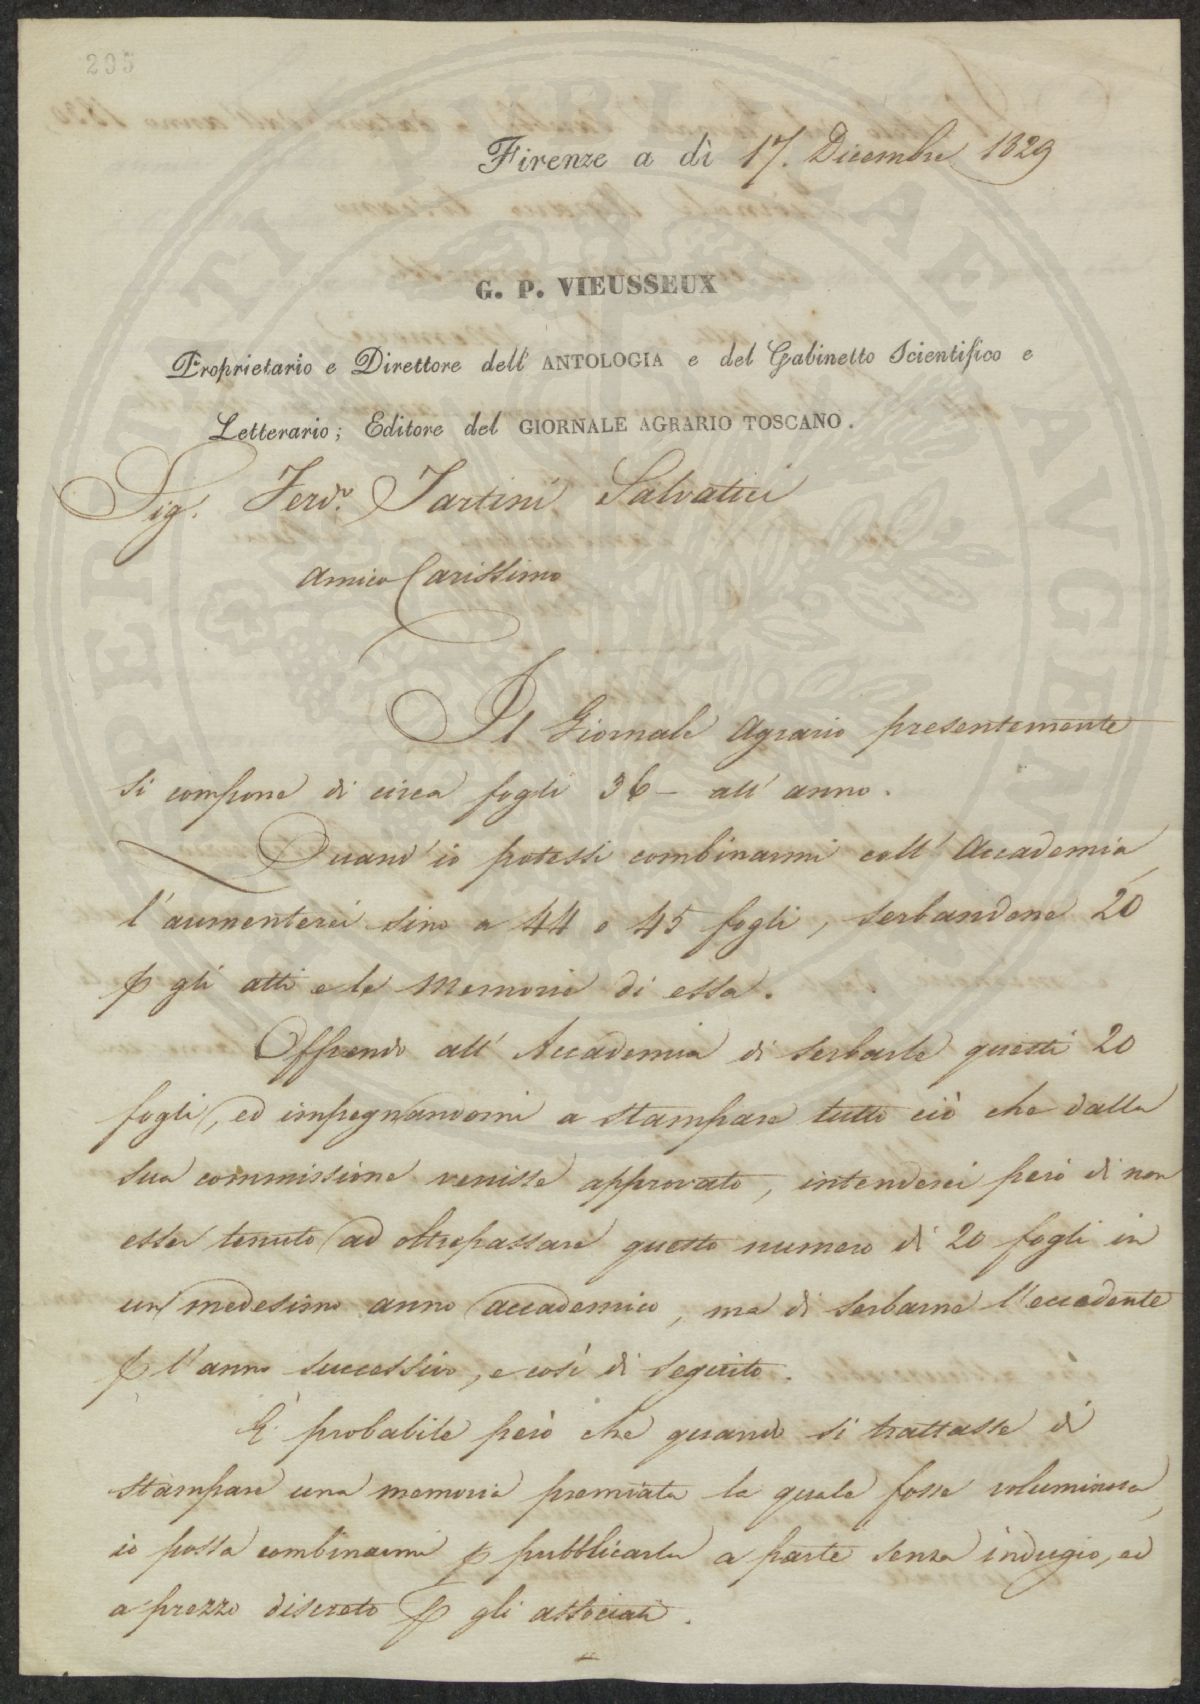 295
Firenze a dì 17. Dicembre 1829
G. P. VIEUSSEUX
Proprietario e Direttore dell' ANTOLOGIA e del Gabinetto Scientifico e
Letterario; Editore del GIORNALE AGRARIO TOSCANO.
Sig.r Ferd.o Tartini Salvatici
Amico Carissimo
Il Giornale Agrario presentemente
si compone di circa fogli 36 - all' anno.
Quand' io potessi combinarmi coll' Accademia,
l'aumenterei sino a 44 o 45 fogli, serbandone 20
p gli atti e le Memorie di essa.
Offrendo all' Accademia di serbarle questi 20
fogli, ed impegnandomi a stampare tutto ciò che dalla
sua commissione venisse approvato, intenderei però di non
esser tenuto ad oltrepassare questo numero di 20 fogli in
un medesimo anno accademico, ma di serbarne l'eccedente
p l'anno successivo, e così di seguito.
È probabile però che quando si trattasse di
stampare una memoria premiata la quale fosse voluminosa,
io possa combinarmi p pubblicarla a parte senza indugio, ed
a prezzo discreto p gli associati.